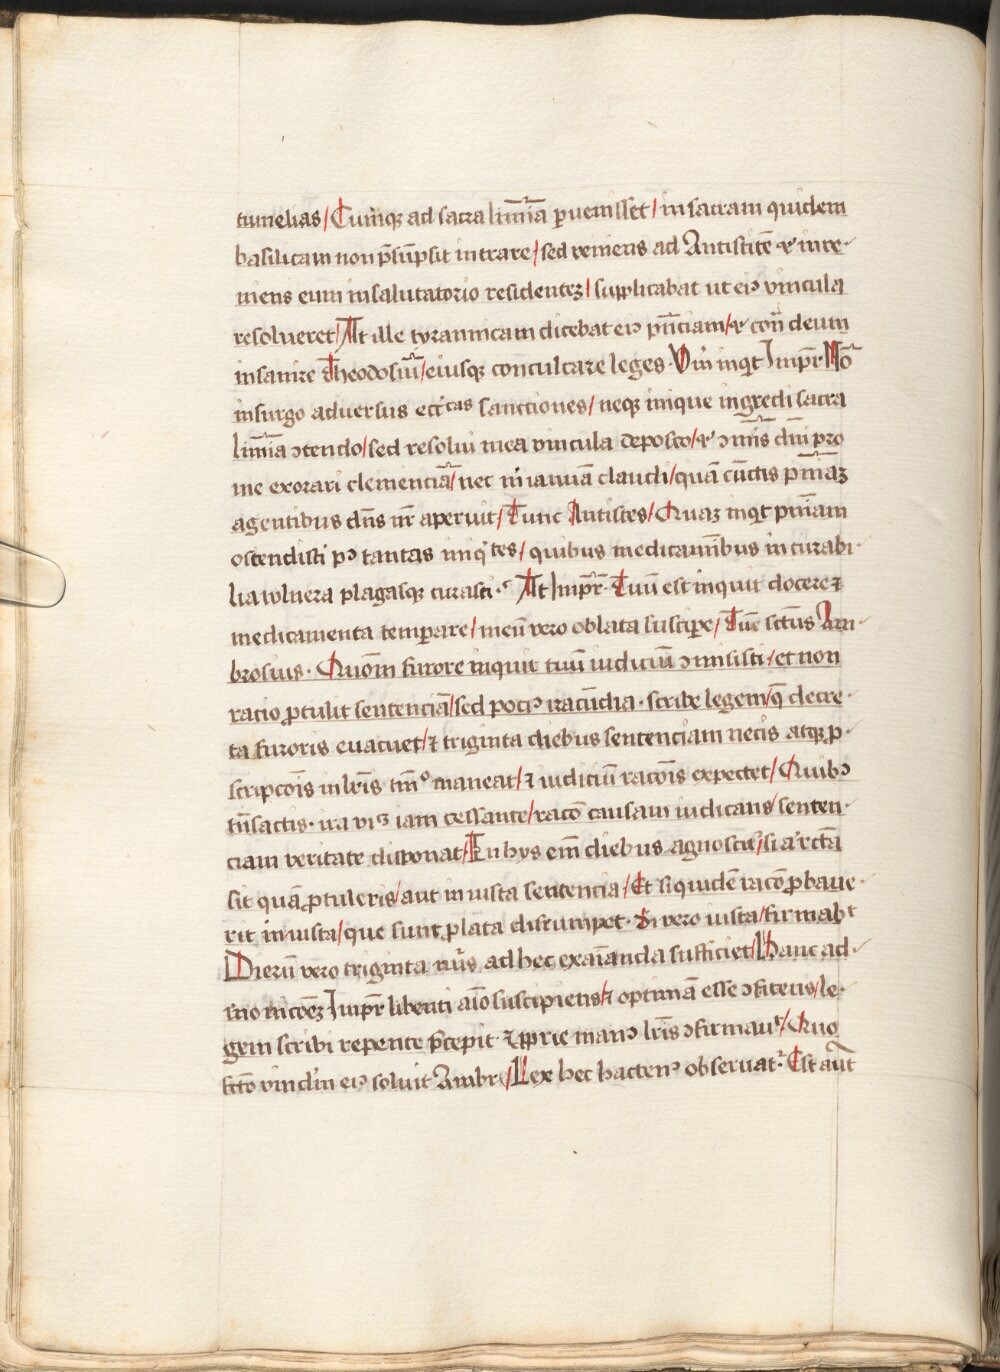 tumelias / Cumqꝫ ad sacra limi̅a ꝑuenisset / in sacram quidem
basilicam non p̅su̅psit intrare / sed veniens ad Antistite̅ ⁊ inve-
niens eum in salutatorio residentez / supplicabat ut eiꝰ vincula
resolueret / At ille tyrannicam dicebat eiꝰ pn̅ciam / ⁊ con̅ deum
insanire Theodosiu̅ / eiusqꝫ conculcare leges. Cui inqt Impr̅ No̅
insurgo aduersus ecc̅tcas sanctiones / neqꝫ inique ingredi sacra
limi̅a ↄtendo / sed resolui mea vincula deposco / ⁊ ↄmi̅s dn̅i pro
me exorari clemencia̅ / nec m̅ ianua̅ claudi / qua̅ cu̅ctis pn̅iaꝫ
agentibus dn̅s nr̅ aperuit / Tunc Antistes / Quaꝫ inqt pn̅iam
ostendisti pꝰ tantas iniq̅tes / quibus medicami̅bus incurabi-
lia vulnera plagasqꝫ curasti. At Impr̅. Tuu̅ est inquit docere ⁊
medicamenta temperare / meu̅ vero oblata suscipe / Tu̅c sctu̅s Am-
brosius. Quo̅m furore inquit tuu̅ iudiciu̅ ↄmisisti / et non
ratio ꝓtulit sentencia̅ / sed pociꝰ iracu̅dia. scribe legem / q̅ decre-
ta furoris euacuet / ⁊ triginta diebus sentenciam necis atqꝫ ꝓ-
scripco̅is in lr̅is tm̅º maneat / ⁊ iudiciu̅ raco̅is expectet / Quibꝰ
tn̅sactis. ira viꝫ iam cessante / raco̅ causam iudicans / senten-
ciam veritate disponat / In hys em̅ diebus agnoscit̅ / si a̅ rcta̅
sit qua̅ ꝓtuleris / aut iniusta sentencia / Et siquide̅ raco̅ ꝓbaue-
rit iniusta / que sunt ꝓlata disrumpet. Si vero iusta / firmabt
Dieru̅ vero triginta nu̅s ad hec exai̅anda sufficiet / Hanc ad-
mo̅nico̅eꝫ Impr̅ libenti ai̅o suscipiens / ⁊ optima̅ esse ↄfitens / le-
gem scribi repente p̅cepit. ⁊ ꝓprie manꝰ lr̅is ↄfirmaut̅ / Quo
fct̅o vincl̅m eiꝰ soluit Ambr̅ / Lex hec hactenꝰ obseruat̅. Est aut̅